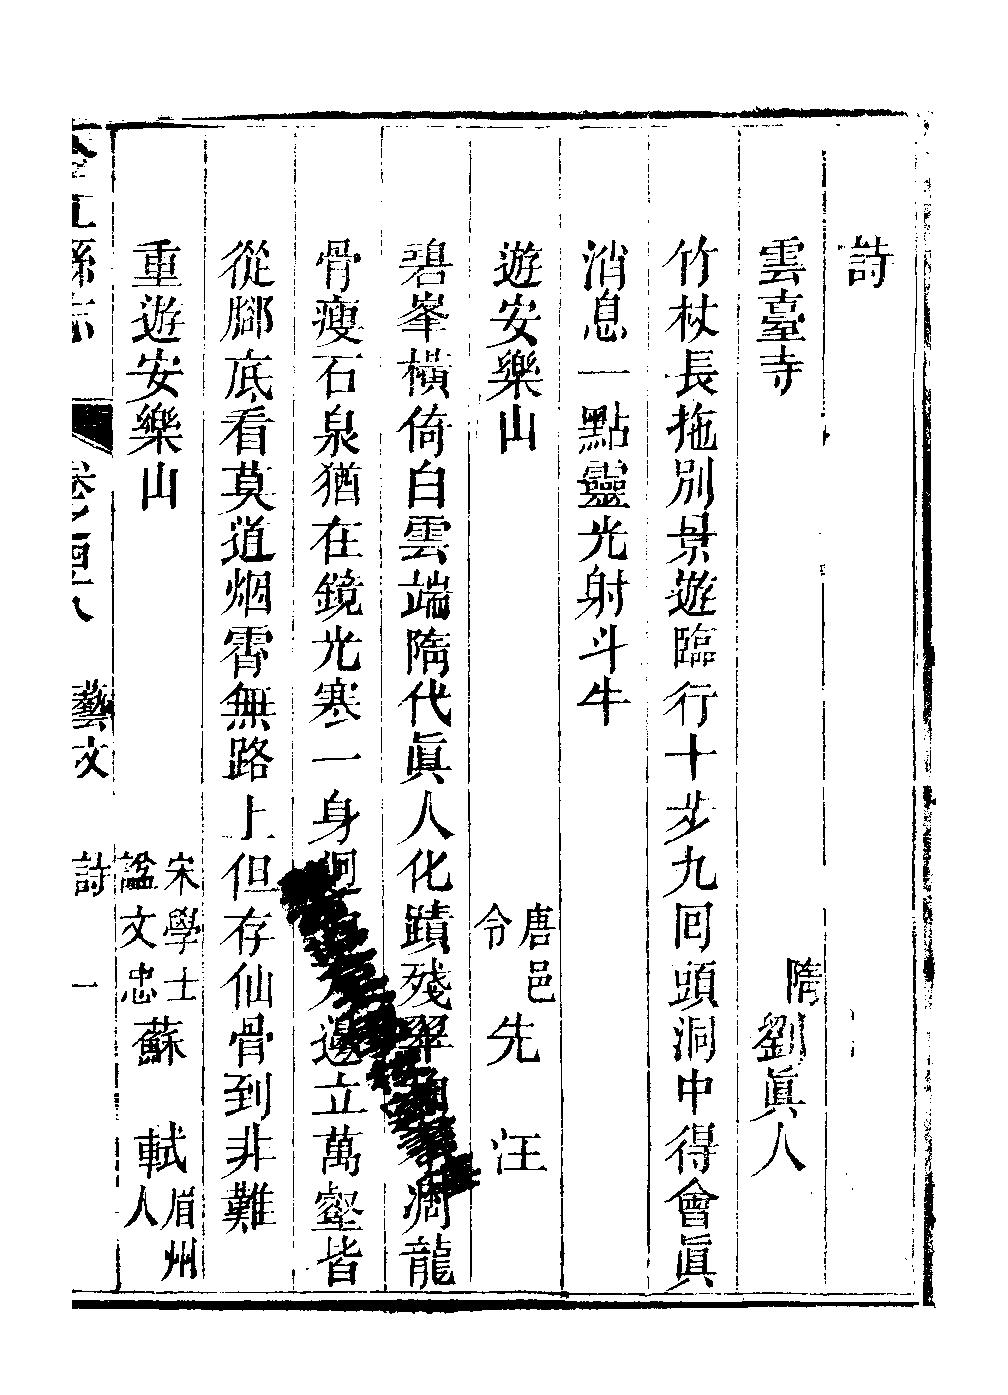 詩
雲臺寺 隋劉眞人
竹杖長拖別景遊臨行十步九回頭洞中得會眞
消息一點靈光射斗牛
遊安樂山 唐邑令先汪
碧峯橫倚白雲端隋代眞人化蹟殘翠凋龍
骨瘦石泉猶在鏡光寒一身邊立萬壑皆
從腳底看莫道烟霄無路上但存仙骨到非難
重遊安樂山 宋學士諡文忠蘇軾眉州人
合江縣志 卷之四十八 藝文 詩 一